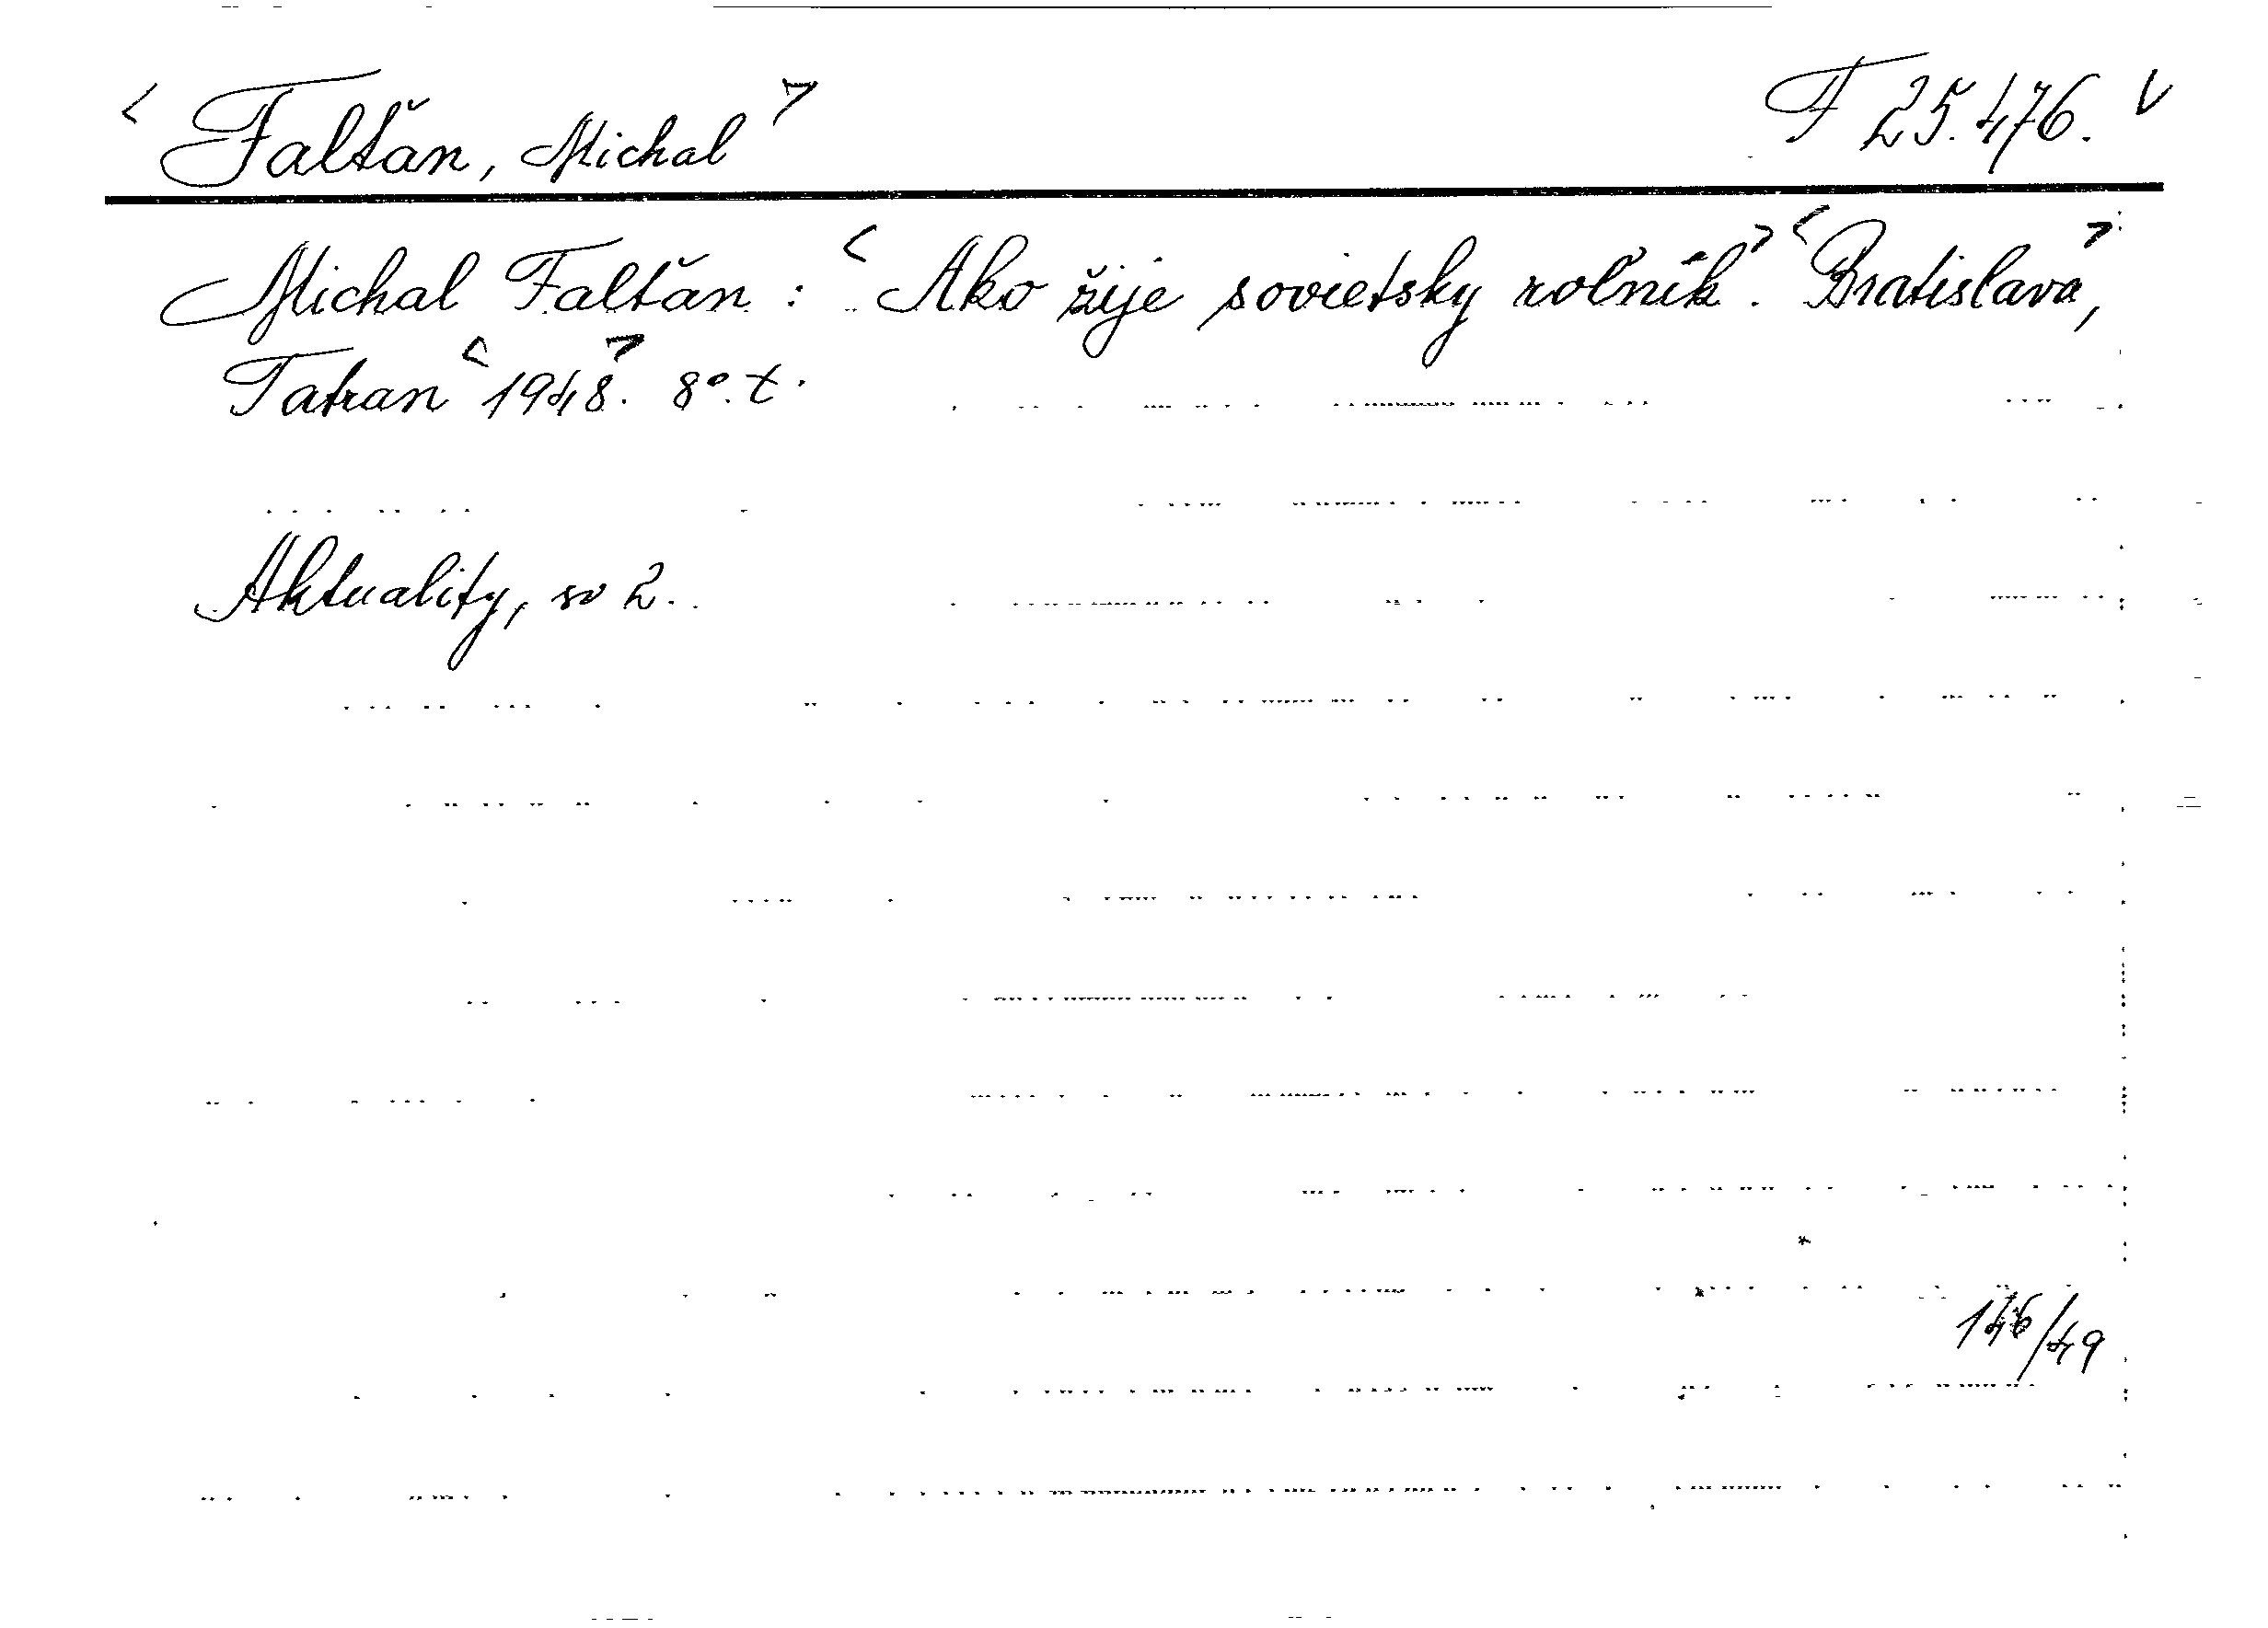 < Falťan, Michal > F 25.476. V
Michal Falťan : < Ako žije sovietsky roľník >. < Bratislava >,
Tatran < 1948 >. 8°. t.
Aktuality, sv 2.
146/49